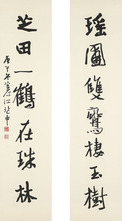 瑤圃雙鸞棲玉樹
芝田一鶴在珠林